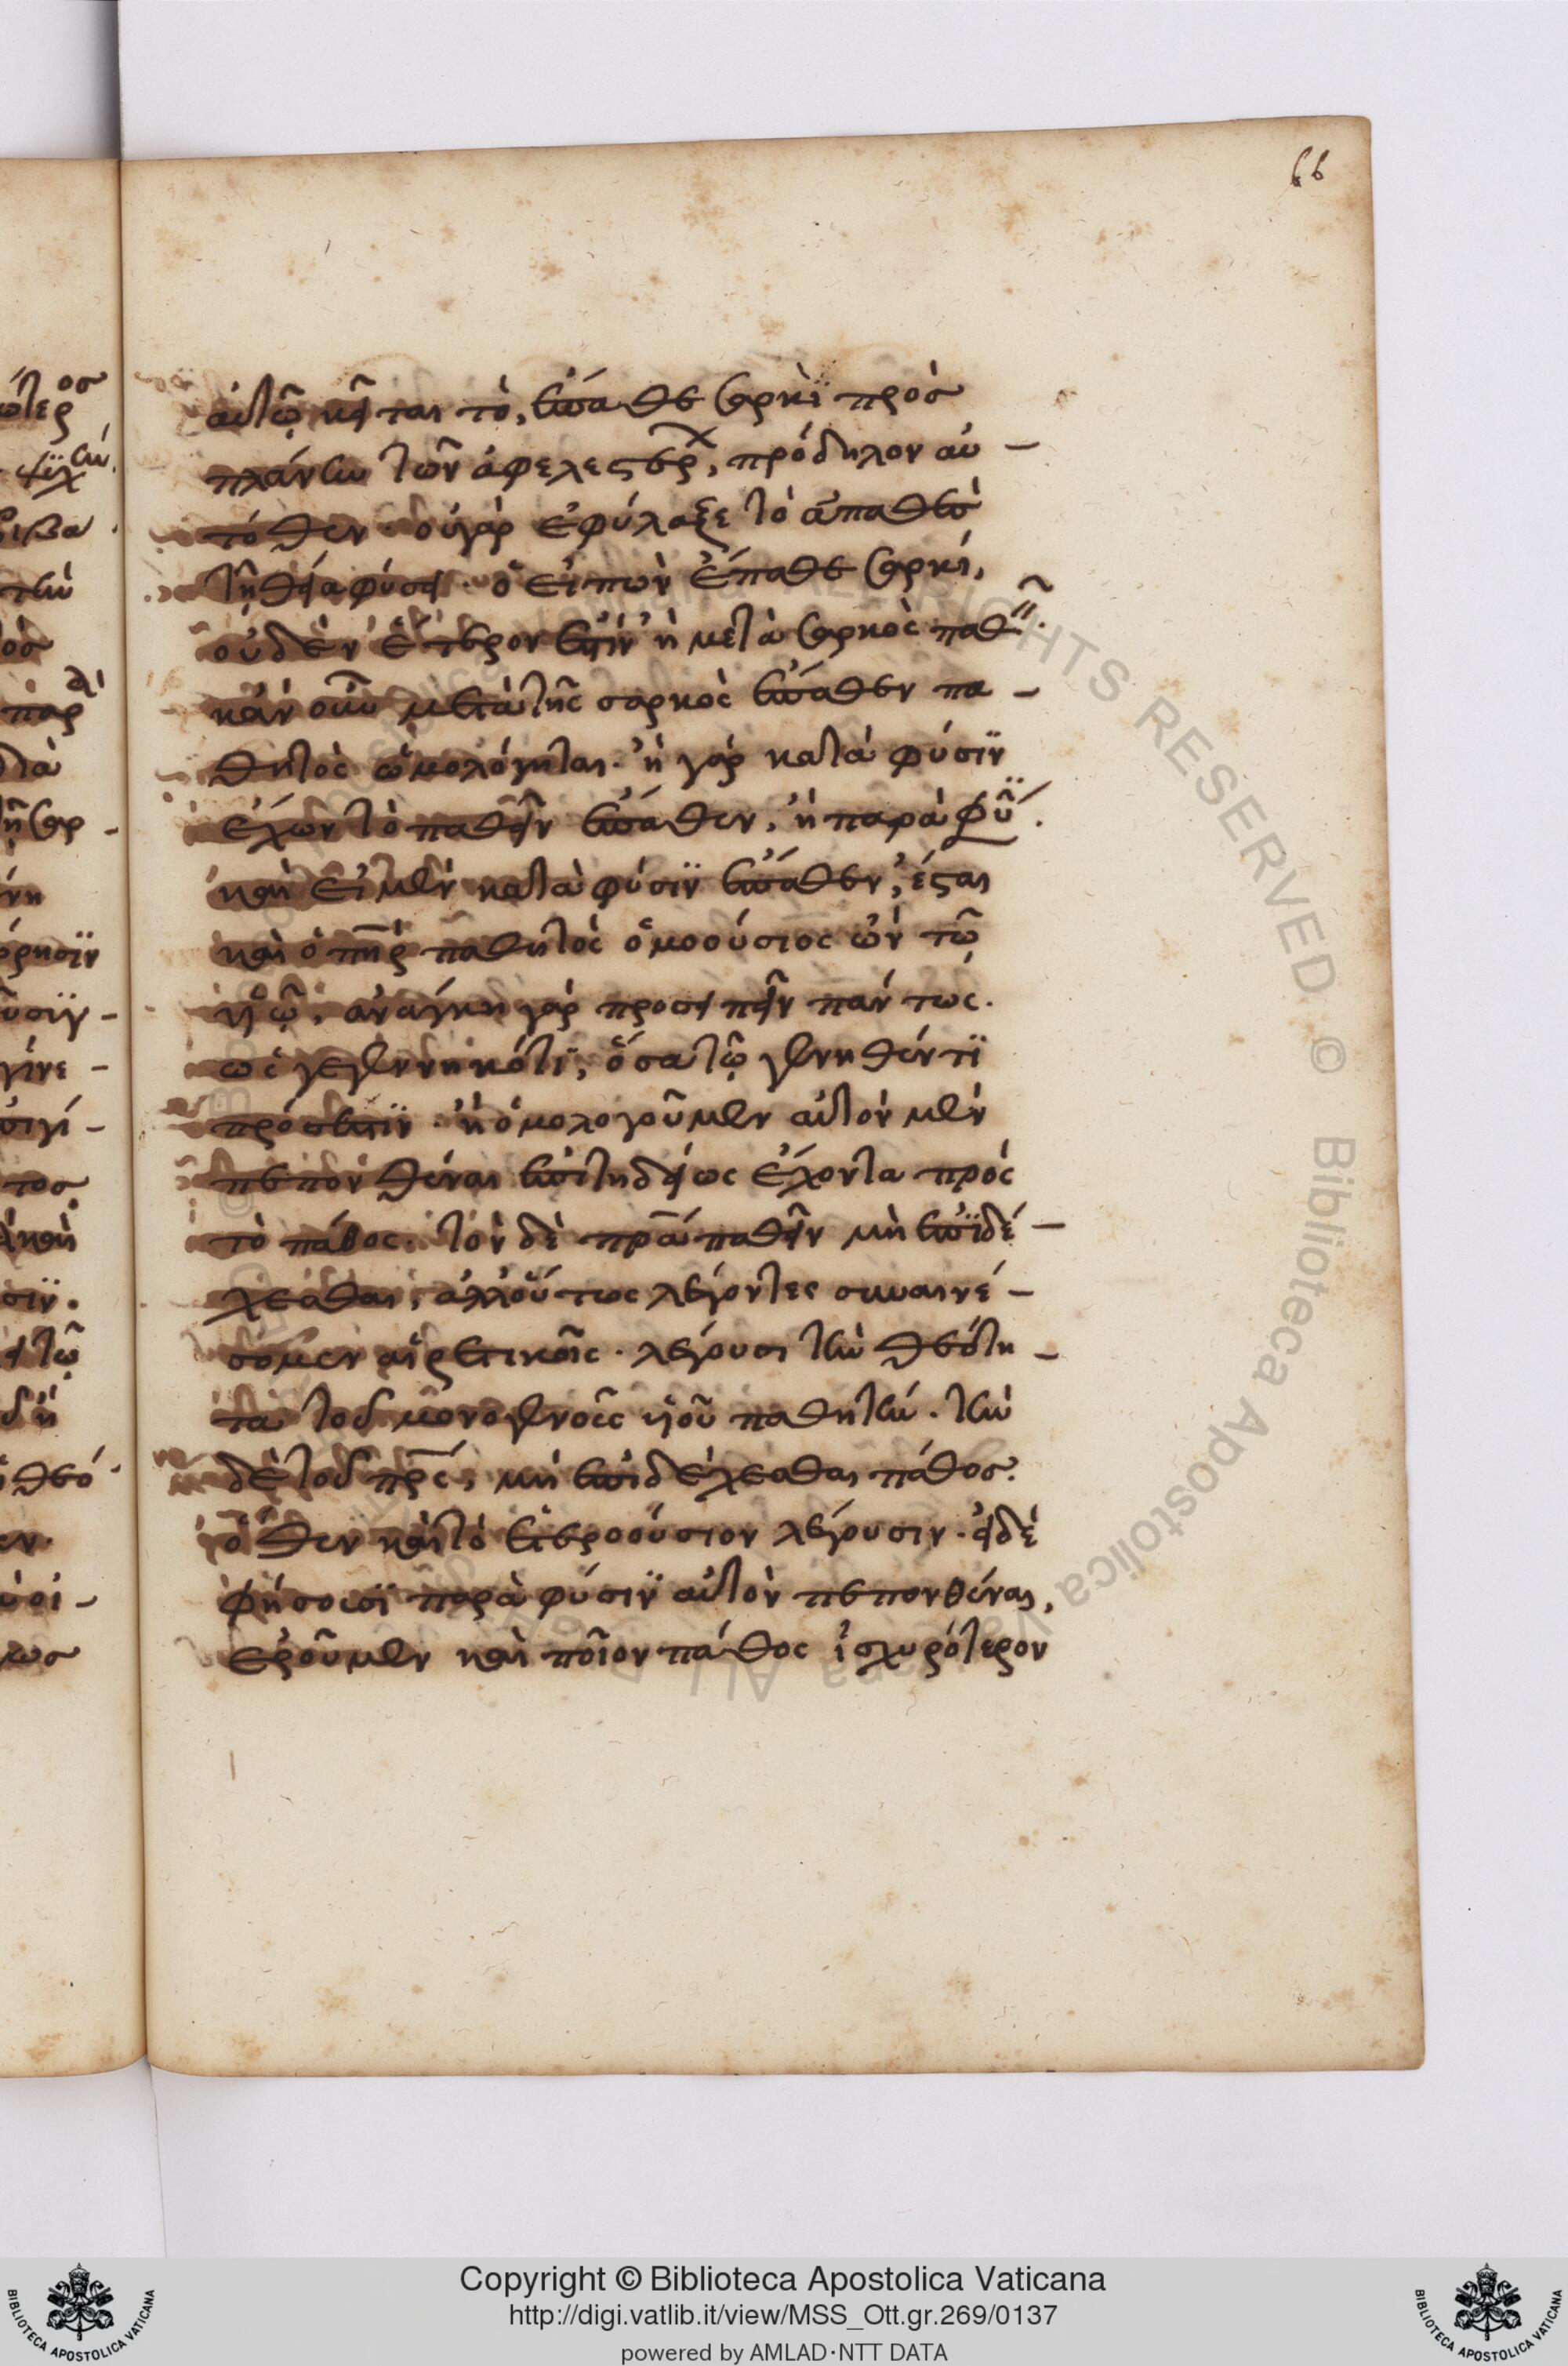 66
αὐτῷ κεῖται τὸ, ἔπαθε σαρκὶ πρὸς
πλάνην τῶν ἀφελεστερ, πρόδηλον αὐ-
τόθεν. οὐ γὰρ ἐφύλαξε τὸ ἀπαθὲς
τῇ θεία φύσει. ὁ εἰπὼν ἔπαθε σαρκί,
οὐδὲν ἕτερόν ἐστιν ἢ μετὰ σαρκὸς παθ
κἂν οὖν μετὰ τῆς σαρκὸς ἔπαθεν πα-
θητὸς ὡμολόγηται. ἢ γὰρ κατὰ φύσιν
ἔχων τὸ παθεῖν ἔπαθεν, ἢ παρὰ φύ.
καὶ εἰ μὲν κατὰ φύσιν ἔπαθεν, ἔσται
καὶ ὁ πηρ παθητὸς ὁμοούσιος ὢν τῷ
υἱῷ. ἀνάγκη γὰρ προσειπεῖν πάντως.
ὡς γεγεννηκότι, ὅσα τῷ γεννηθέντι
πρόσεστιν. ἢ ὁμολογοῦμεν αὐτὸν μὲν
πεπονθέναι ἐπιτηδείως ἔχοντα πρὸς
τὸ πάθος. τὸν δὲ πρα παθεῖν μὴ ἐπιδέ-
χεσθαι, ἀλλ' οὕτως λέγοντες συναινέ-
σομεν αἱρετικοῖς. λέγουσι τὴν θεότη-
τα τοῦ μονογενοῦς υἱοῦ παθητήν. τὴν
δὲ τοῦ πρς, μὴ ἐπιδέχεσθαι πάθος.
ὅθεν καὶ τὸ ἑτεροούσιον λέγουσιν. εἰ δὲ
φήσουσι παρὰ φύσιν αὐτὸν πεπονθέναι,
ἐροῦμεν καὶ ποῖον πάθος ἰσχυρότερον
Copyright © Biblioteca Apostolica Vaticana
http://digi.vatlib.it/view/MSS_Ott.gr.269/0137
powered by AMLAD·NTT DATA